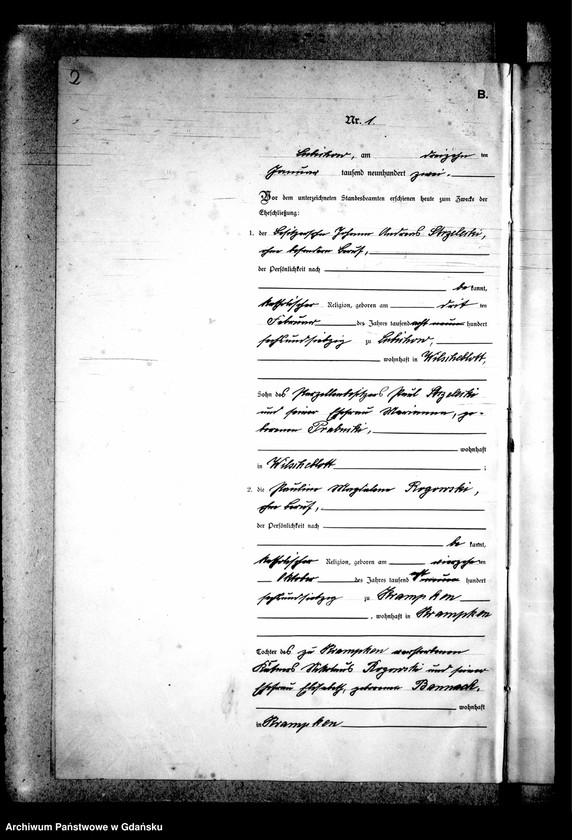 2
B.
Nr. 1.
am dreizehn ten
Januar tausend neunhundert zwei.
Vor dem unterzeichneten Standesbeamten erschienen heute zum Zwecke der
Eheschließung:
1. der Besitzersohn Johann Andreas Strzelecki,
ohne besonderen Beruf,
der Persönlichkeit nach
be kannt,
katholischer Religion, geboren am dritten
Februar des Jahres tausend acht neun hundert
sechsundsiebzig zu
wohnhaft in Wilscheblott,
Sohn des Parzellenbesitzers Paul Strzelecki
und seiner Ehefrau Marianna, ge-
borenen
wohnhaft
in Wilscheblott ;
2. die Pauline Magdalena Rogowski,
ohne Beruf,
der Persönlichkeit nach
be kannt,
katholischer Religion, geboren am vierzehn ten
Oktober des Jahres tausend acht neun hundert
sechsundsiebzig zu Skrampken
, wohnhaft in Skrampken
Tochter des zu Skrampken verstorbenen
Kätners Nikolaus Rogowski und seiner
Ehefrau Elisabeth, geborenen Bannach,
wohnhaft
in Skrampken
Archiwum Państwowe w Gdańsku